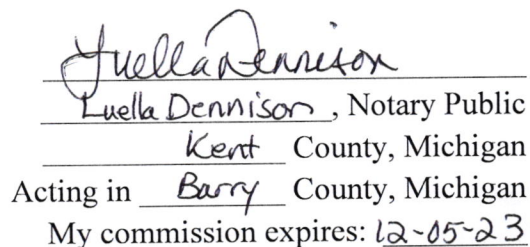 Luella Dennison
Luella Dennison, Notary Public
Kent County, Michigan
Acting in Barry County, Michigan
My commission expires: 12-05-23